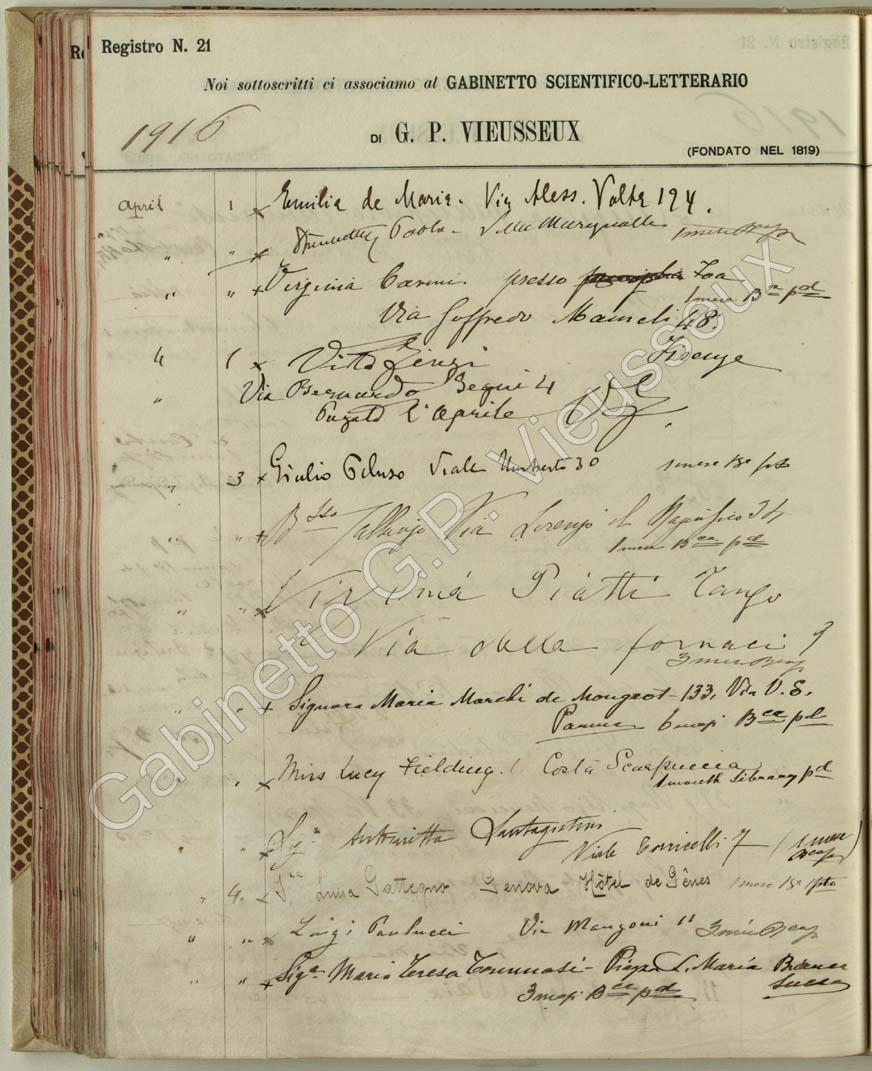 Registro N. 21
Noi sottoscritti ci associamo al GABINETTO SCIENTIFICO-LETTERARIO
1916
DI G. P. VIEUSSEUX
(FONDATO NEL 1819)
April 1 x Emilia de Maria. Via Aless. Volta 194.
" " x Paola - Villa
" " x Virginia presso Foa
1 mese Bca pd
Via Goffredo Mameli 48
Firenze
" 1 x
" Via Bernardo 4
1° Aprile
" 3 x Giulio Peluso Viale Umberto 30 1 mese Ba pto
" " x Via Lorenzo il Magnifico 34
1 mese Bca pd
" " x Virginia Piatti Tango
Via delle fornaci 9
3 mesi Bca pd
" " x Signora Maria Marchi de Mongeot - 133, Via V. E.
Parma 6 mesi Bca pd
" " x Miss Lucy Fielding. 1 Costa Scarpuccia
1 month Library pd
" " x Sigra Antonietta Santagostini
Viale Torricelli 7 (1 mese Bca pd)
" 4. x Sra Luisa Gattegno Genova Hôtel de Gênes 1 mese Ba pto
" " x Luigi Paulucci Via Manzoni 11 3 mesi Bca pd
" " x Siga Maria Teresa Tommasi - Piazza S. Maria Bianca
Lucca
3 mesi Bca pd
Gabinetto G.P. Vieusseux